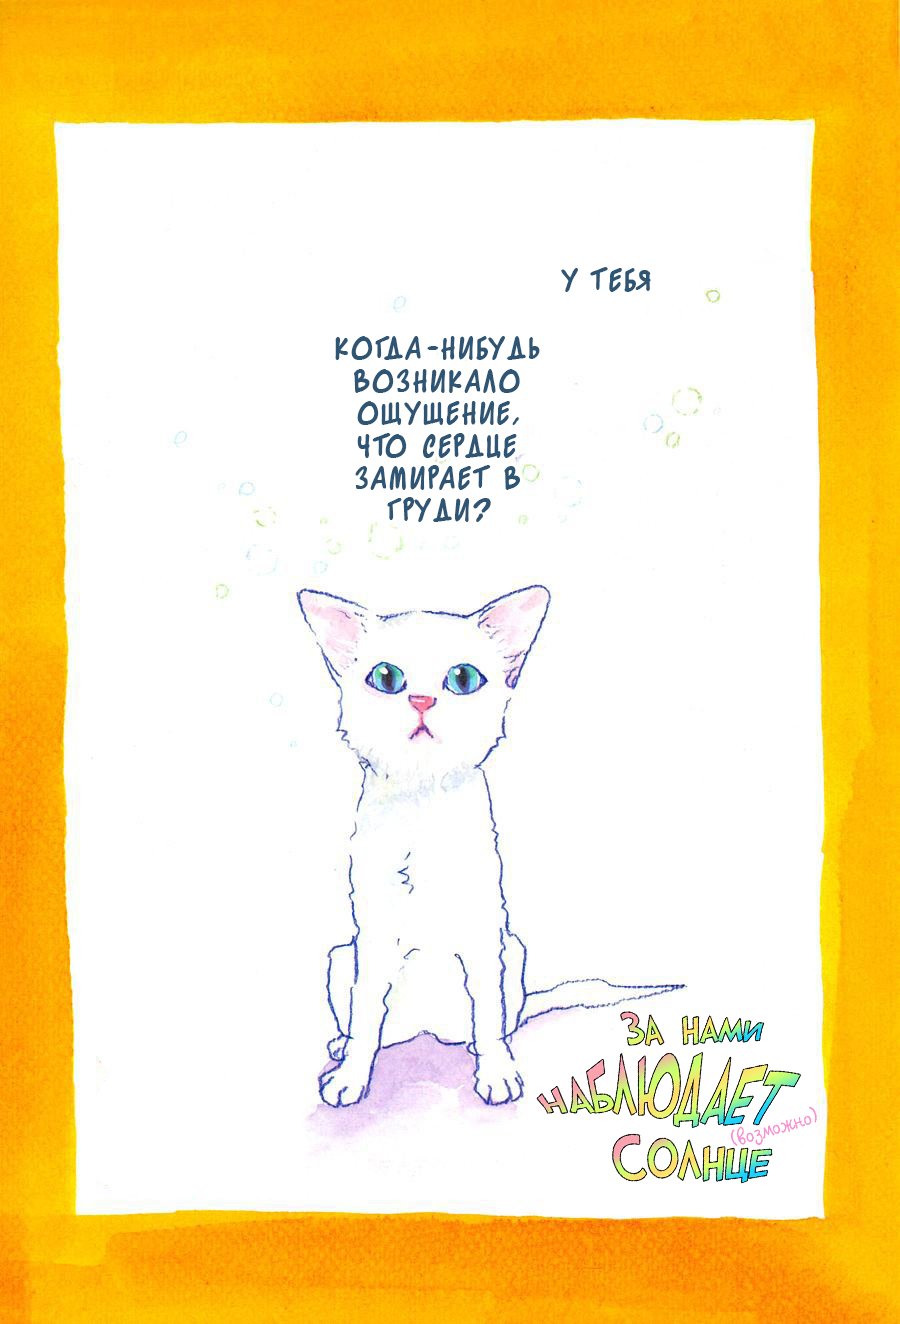 У ТЕБЯ
КОГДА-НИБУДЬ
ВОЗНИКАЛО
ОЩУЩЕНИЕ,
ЧТО СЕРДЦЕ
ЗАМИРАЕТ В
ГРУДИ?
ЗА НАМИ
НАБЛЮДАЕТ
(возможно)
СОЛНЦЕ